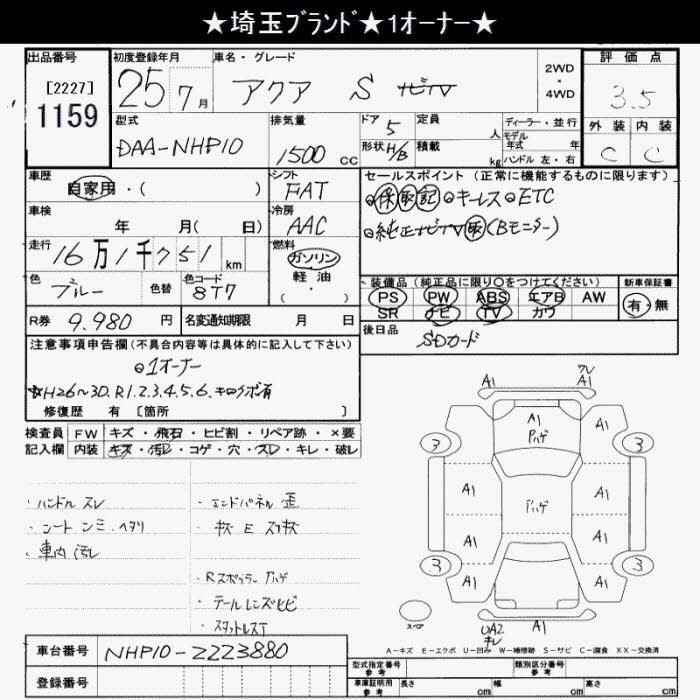 ★埼玉ﾌﾞﾗﾝﾄﾞ★1オーナー★
出品番号 初度登録年月 車名・グレード 評価点
[2227] 25年7月 アクア S ナビTV 2WD・4WD 3.5
1159
型式 排気量 ドア 定員 ディーラー・並行 外装 内装
DAA-NHP10 1500cc 5 人 モデル年式 年 C C
形状 H/B 積載 kg ハンドル 左・右
車歴 シフト セールスポイント (正常に機能するものに限ります)
自家用・( ) FAT ◎保取記 ◎キーレス ◎ETC
車検 冷房 ◎純正ナビTV取(Bモニター)
年 月( 日) AAC
走行 燃料
16万1千751km ガソリン
軽油
( ・ )
色 色替 色コード 装備品(純正品に限り○をつけてください) 新車保証書
ブルー 8T7 PS PW ABS エアB AW 有・無
SR ナビ TV カワ
R券 9.980円 名変通知期限 月 日 後日品
SDカード
注意事項申告欄(不具合内容等は具体的に記入して下さい)
◎1オーナー
☆H26~30.R1.2.3.4.5.6.キロクボ有
修復歴 有 [箇所 ]
検査員 FW キズ・飛石・ヒビ割・リペア跡・×要
記入欄 内装 キズ・汚レ・コゲ・穴・スレ・キレ・破レ
・ハンドル スレ
・シート シミ ヘタリ
・車内 汚レ
・エンドパネル 歪
・Rスポイラー Pハゲ
・テールレンズヒビ
・スタットレスT
A1 A1
A1
Pハゲ
3 3
A1 A1
Pハゲ
A1 A1
3 3
A1 A1
スペア
UA2 A1
キレ
A-キズ E-エクボ U-凹み W-補修跡 S-サビ C-腐食 XX-交換済
車台番号 NHP10-2223880
登録番号
型式指定番号 参考 類別区分番号 参考
車庫証明用 参考 長さ cm 幅 cm 高さ cm